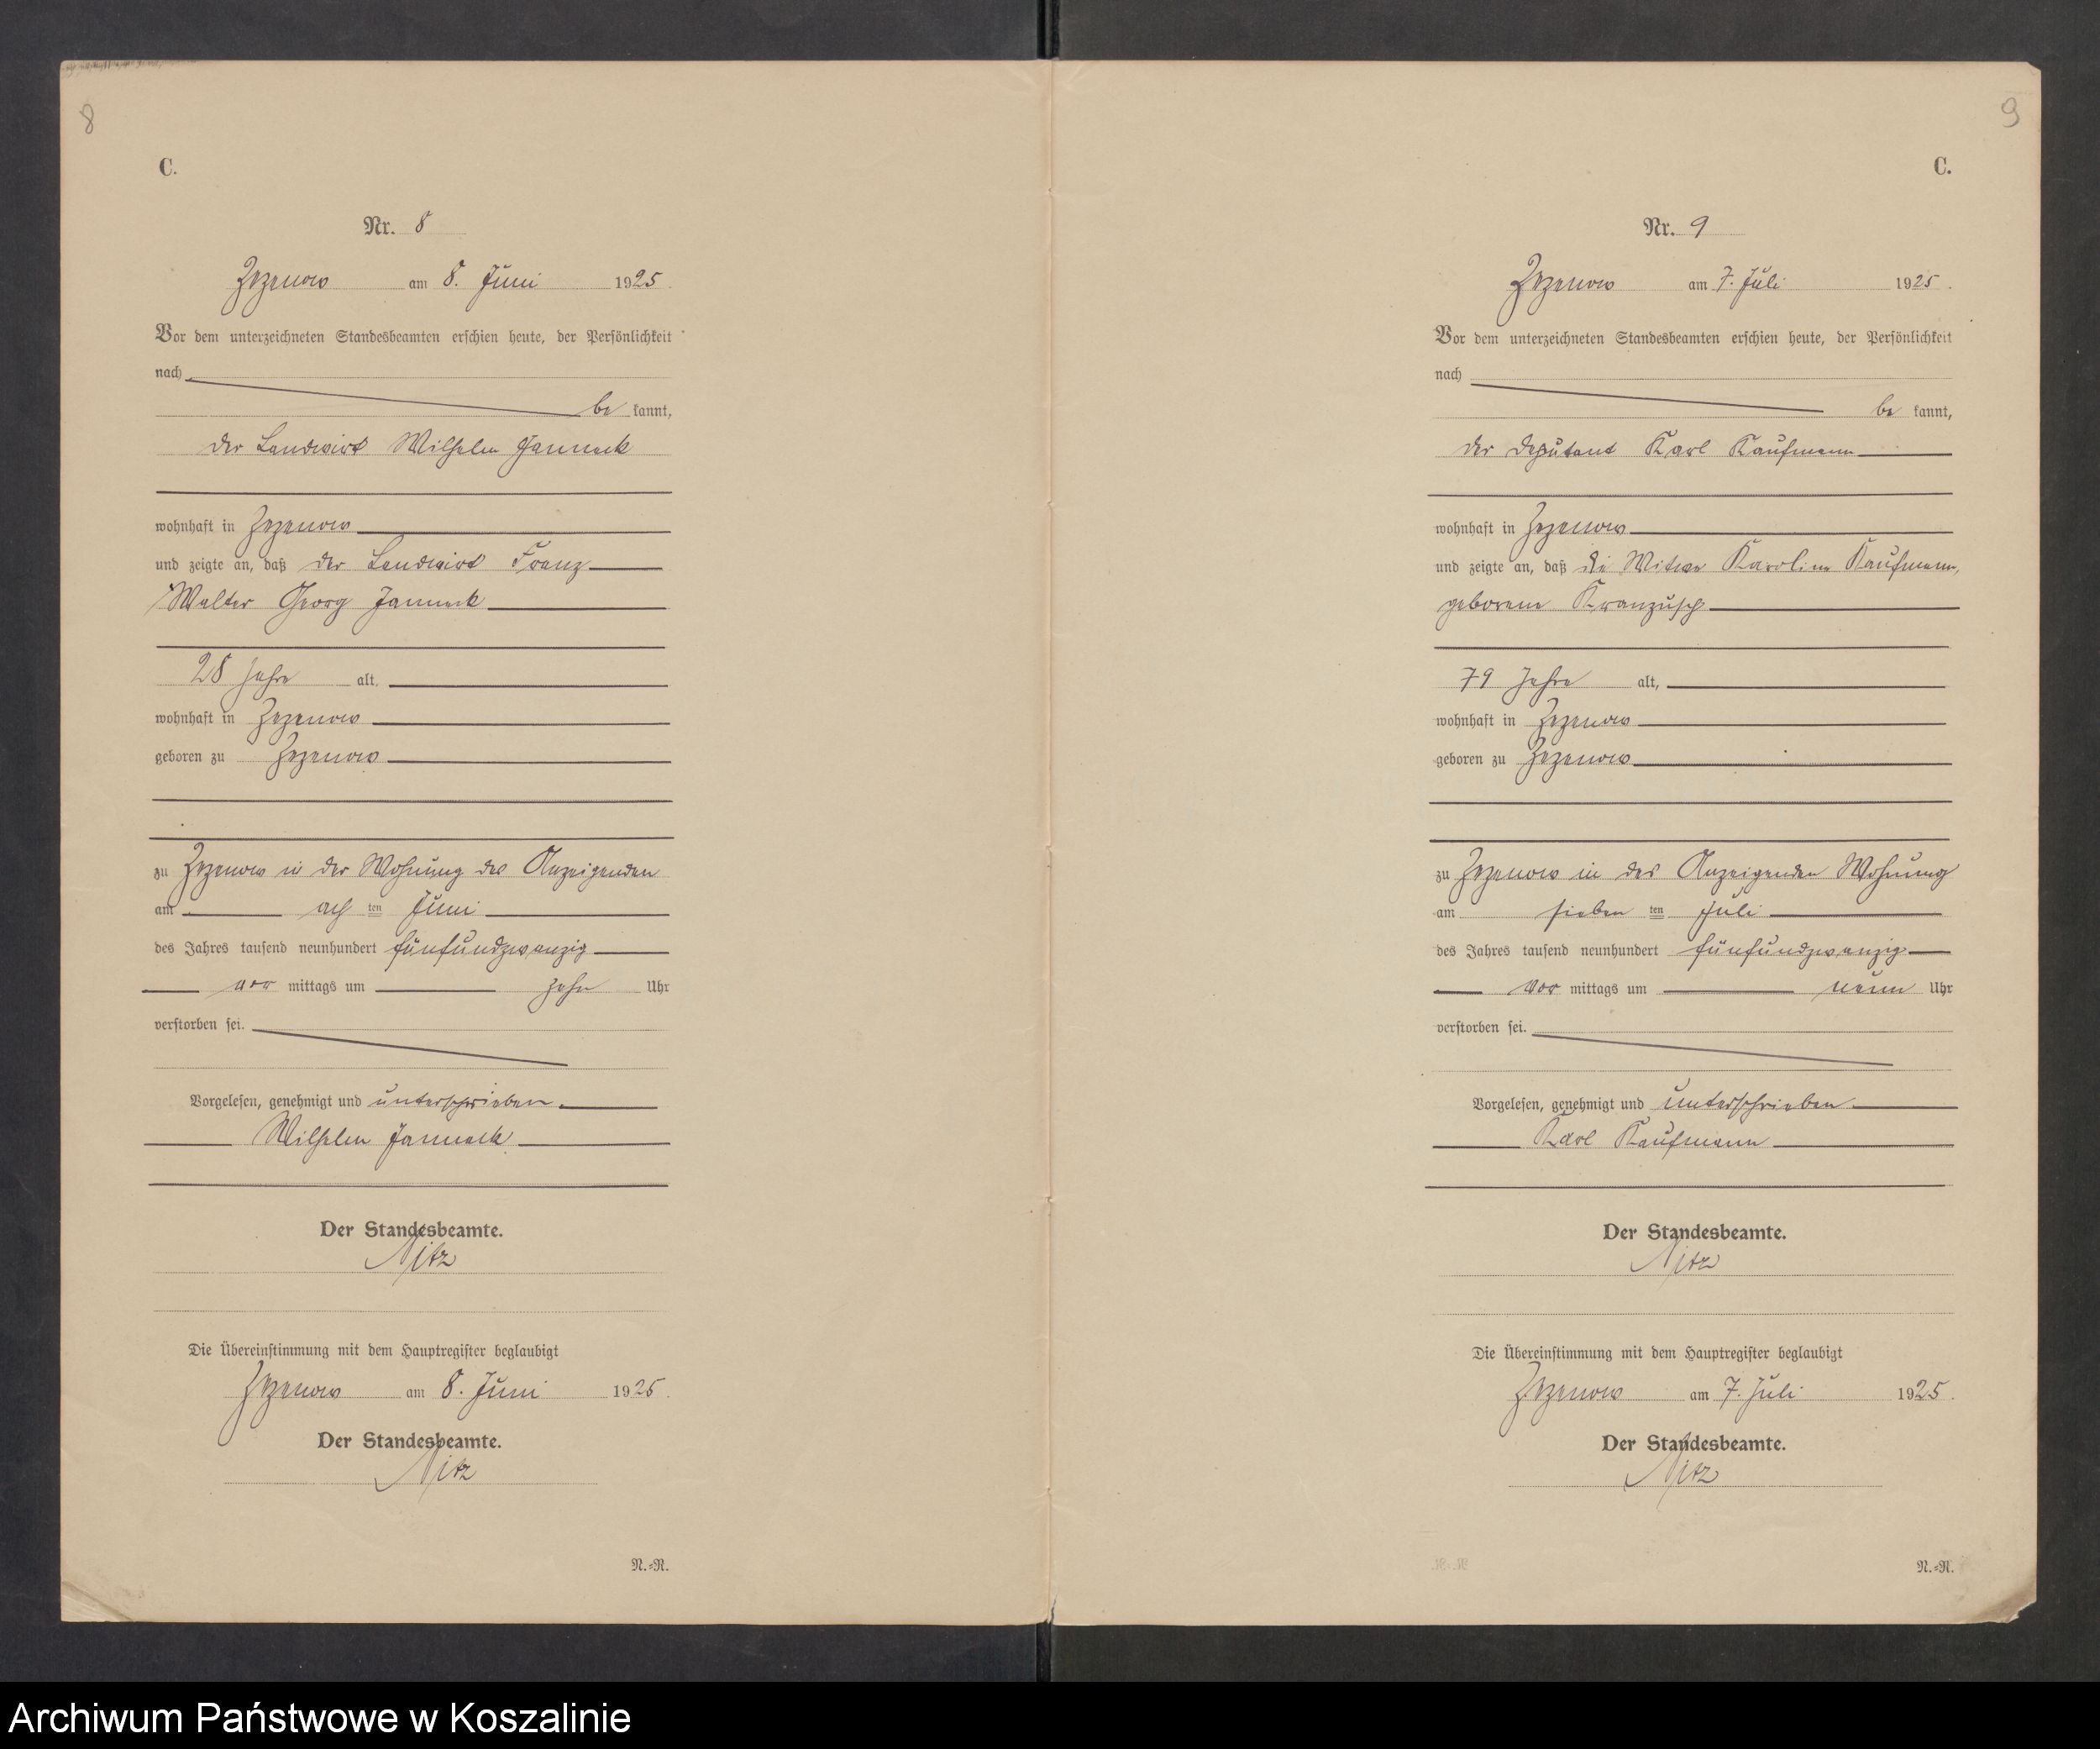 8
C.
Nr. 8
Zezenow am 8. Juni 1925.
Vor dem unterzeichneten Standesbeamten erschien heute, der Persönlichkeit
nach
be kannt,
der Landwirt Wilhelm Janneck
wohnhaft in Zezenow
und zeigte an, daß der Landwirt Franz
Walter Georg Janneck
28 Jahre alt,
wohnhaft in Zezenow
geboren zu Zezenow
zu Zezenow in der Wohnung des Anzeigenden
am ach ten Juni
des Jahres tausend neunhundert fünfundzwanzig
vor mittags um zehn Uhr
verstorben sei.
Vorgelesen, genehmigt und unterschrieben.
Wilhelm Janneck.
Der Standesbeamte.
Nitz
Die Übereinstimmung mit dem Hauptregister beglaubigt
Zezenow am 8. Juni 1925.
Der Standesbeamte.
Nitz
N.=R.
9
C.
Nr. 9
Zezenow am 7. Juli 1925.
Vor dem unterzeichneten Standesbeamten erschien heute, der Persönlichkeit
nach
be kannt,
der Deputant Karl Kaufmann
wohnhaft in Zezenow
und zeigte an, daß die Witwe Karoline Kaufmann,
geborene Kranzusch
79 Jahre alt,
wohnhaft in Zezenow
geboren zu Zezenow
zu Zezenow in des Anzeigenden Wohnung
am sieben ten Juli
des Jahres tausend neunhundert fünfundzwanzig
vor mittags um neun Uhr
verstorben sei.
Vorgelesen, genehmigt und unterschrieben.
Karl Kaufmann
Der Standesbeamte.
Nitz
Die Übereinstimmung mit dem Hauptregister beglaubigt
Zezenow am 7. Juli 1925.
Der Standesbeamte.
Nitz
N.=R.
Archiwum Państwowe w Koszalinie